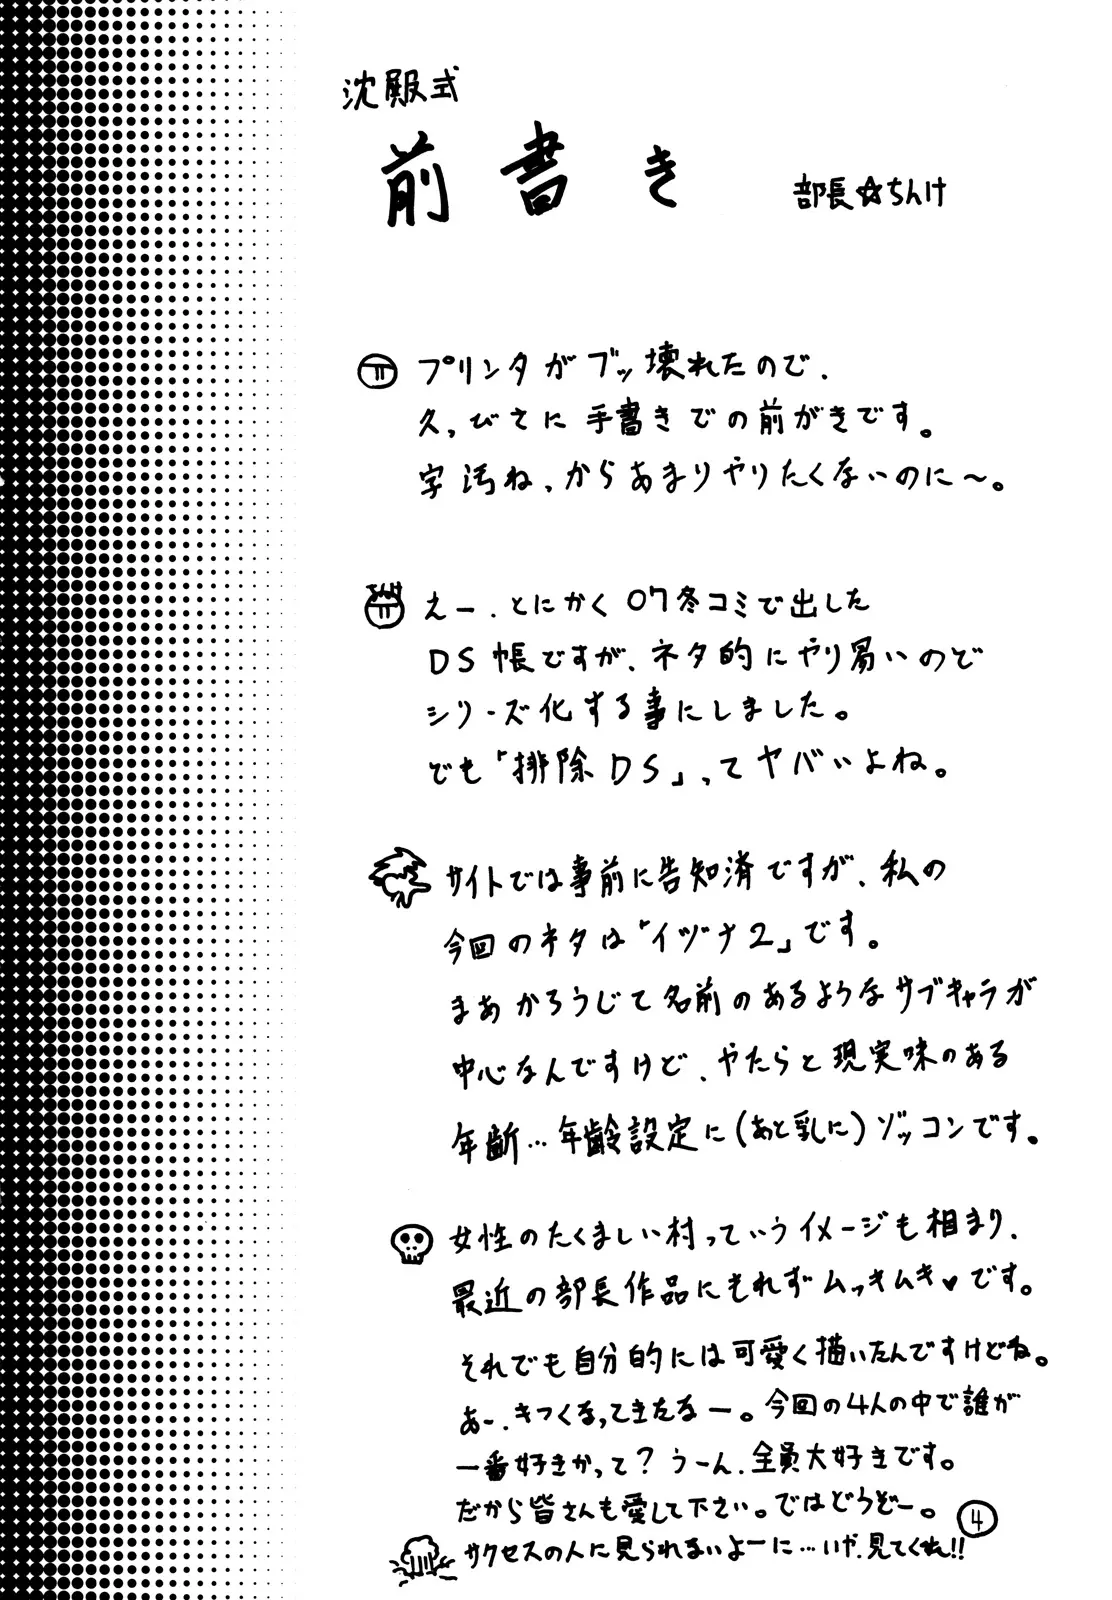 沈殿式
前書き
部長☆ちんけ
プリンタがブッ壊れたので、
久っびさに手書きでの前がきです。
字汚ねぇからあまりやりたくないのに〜。
えー、とにかく07冬コミで出した
DS帳ですが、ネタ的にやり易いので
シリーズ化する事にしました。
でも「排除DS」ってヤバいよね。
サイトでは事前に告知済ですが、私の
今回のネタは「イヅナ2」です。
まあかろうじて名前のあるようなサブキャラが
中心なんですけど、やたらと現実味のある
年齢…年齢設定に(あと乳に)ゾッコンです。
女性のたくましい村っていうイメージも相まり、
最近の部長作品にもれずムッキムキ♥です。
それでも自分的には可愛く描いたんですけどね。
あー、きつくなってきたなー。今回の4人の中で誰が
一番好きかって?うーん、全員大好きです。
だから皆さんも愛して下さい。ではどうぞー。
サクセスの人に見られないよーに…いや、見てくれ!!
4